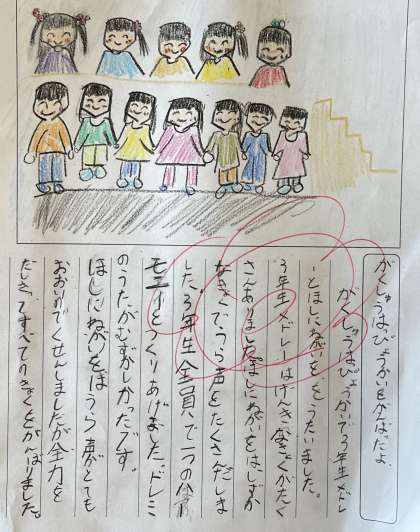 がくしゅうはぴょうかいをがんばったよ
がくしゅうはぴょうかいで3年生メドレ
ーとほしにねがいを、をうたいました。
3年生メドレーはげんきなきょくがたく
さんありました。ほしにねがいをはしずか
なきょくでうら声をたくさんだしま
した。3年生全員で一つのハー
モニーをつくりあげました。ドレミ
のうたがむずかしかったです。
ほしにねがいをはうら声がとても
おおいでくせんしましたが全力を
だしきってすべてのきょくをがんばりました。